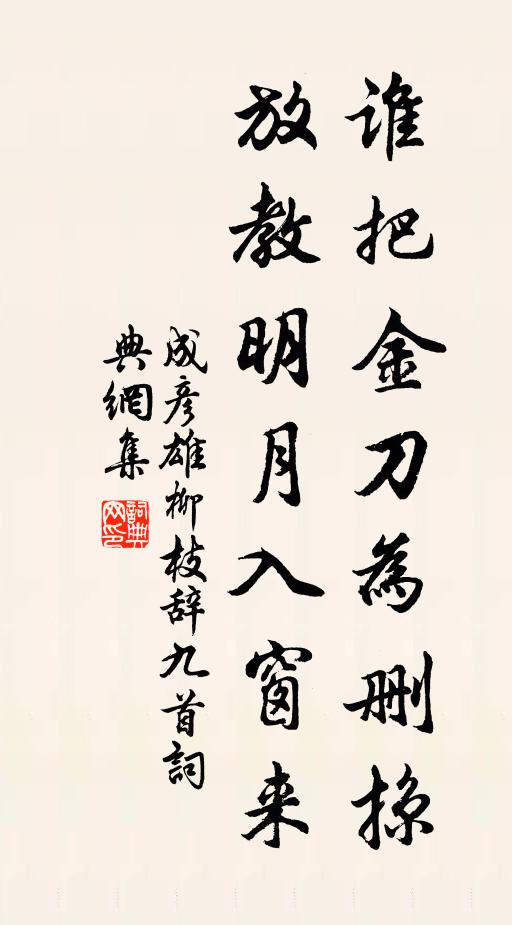 谁把金刀為删掠
放教明月入窗来
成彦雄柳枝辞九首詞
典網集
詞典网印